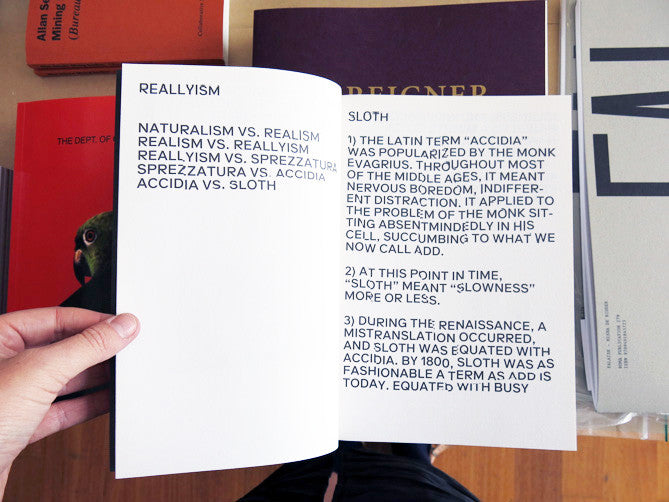 Allan Se
Mining
(Bureau
Collaborative
REIGNER
THE DEPT. OF
REALLYISM
NATURALISM VS. REALISM
REALISM VS. REALLYISM
REALLYISM VS. SPREZZATURA
SPREZZATURA VS. ACCIDIA
ACCIDIA VS. SLOTH
SLOTH
1) THE LATIN TERM “ACCIDIA”
WAS POPULARIZED BY THE MONK
EVAGRIUS. THROUGHOUT MOST
OF THE MIDDLE AGES, IT MEANT
NERVOUS BOREDOM, INDIFFER-
ENT DISTRACTION. IT APPLIED TO
THE PROBLEM OF THE MONK SIT-
TING ABSENTMINDEDLY IN HIS
CELL, SUCCUMBING TO WHAT WE
NOW CALL ADD.
2) AT THIS POINT IN TIME,
“SLOTH” MEANT “SLOWNESS”
MORE OR LESS.
3) DURING THE RENAISSANCE, A
MISTRANSLATION OCCURRED,
AND SLOTH WAS EQUATED WITH
ACCIDIA. BY 1800, SLOTH WAS AS
FASHIONABLE A TERM AS ADD IS
TODAY. EQUATED WITH BUSY